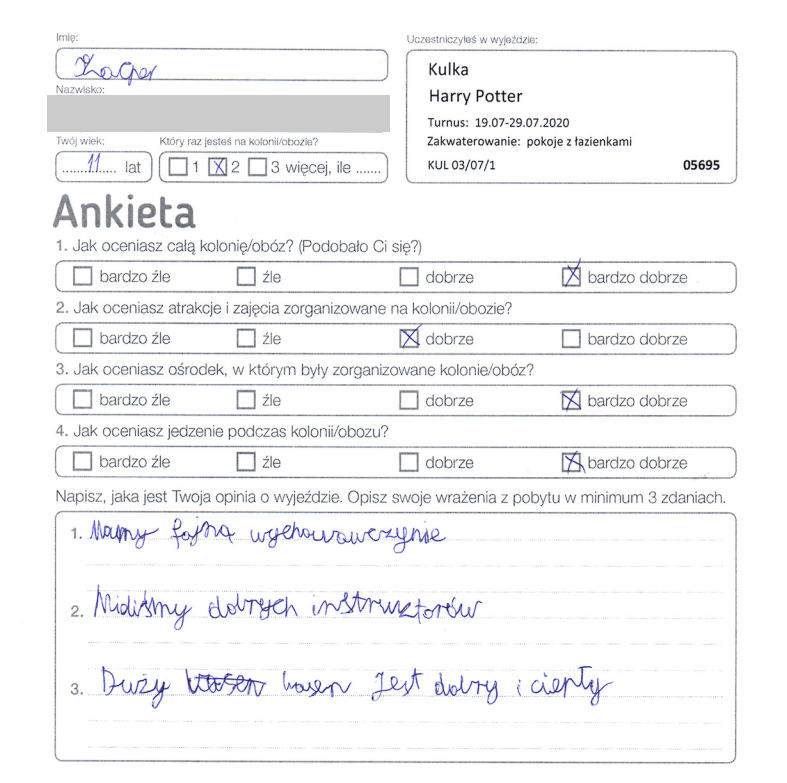 Imię:
Kacper
Uczestniczyłeś w wyjeździe:
Kulka
Harry Potter
Turnus: 19.07-29.07.2020
Zakwaterowanie: pokoje z łazienkami
KUL 03/07/1 05695
Nazwisko:
Twój wiek:
11 lat
Który raz jesteś na kolonii/obozie?
1 X 2 3 więcej, ile .......
Ankieta
1. Jak oceniasz całą kolonię/obóz? (Podobało Ci się?)
bardzo źle źle dobrze X bardzo dobrze
2. Jak oceniasz atrakcje i zajęcia zorganizowane na kolonii/obozie?
bardzo źle źle X dobrze bardzo dobrze
3. Jak oceniasz ośrodek, w którym były zorganizowane kolonie/obóz?
bardzo źle źle dobrze X bardzo dobrze
4. Jak oceniasz jedzenie podczas kolonii/obozu?
bardzo źle źle dobrze X bardzo dobrze
Napisz, jaka jest Twoja opinia o wyjeździe. Opisz swoje wrażenia z pobytu w minimum 3 zdaniach.
1. Mamy fajną wychowawczynie
2. dobrych instruktorów
3. Duży basen jest dobry i ciepły